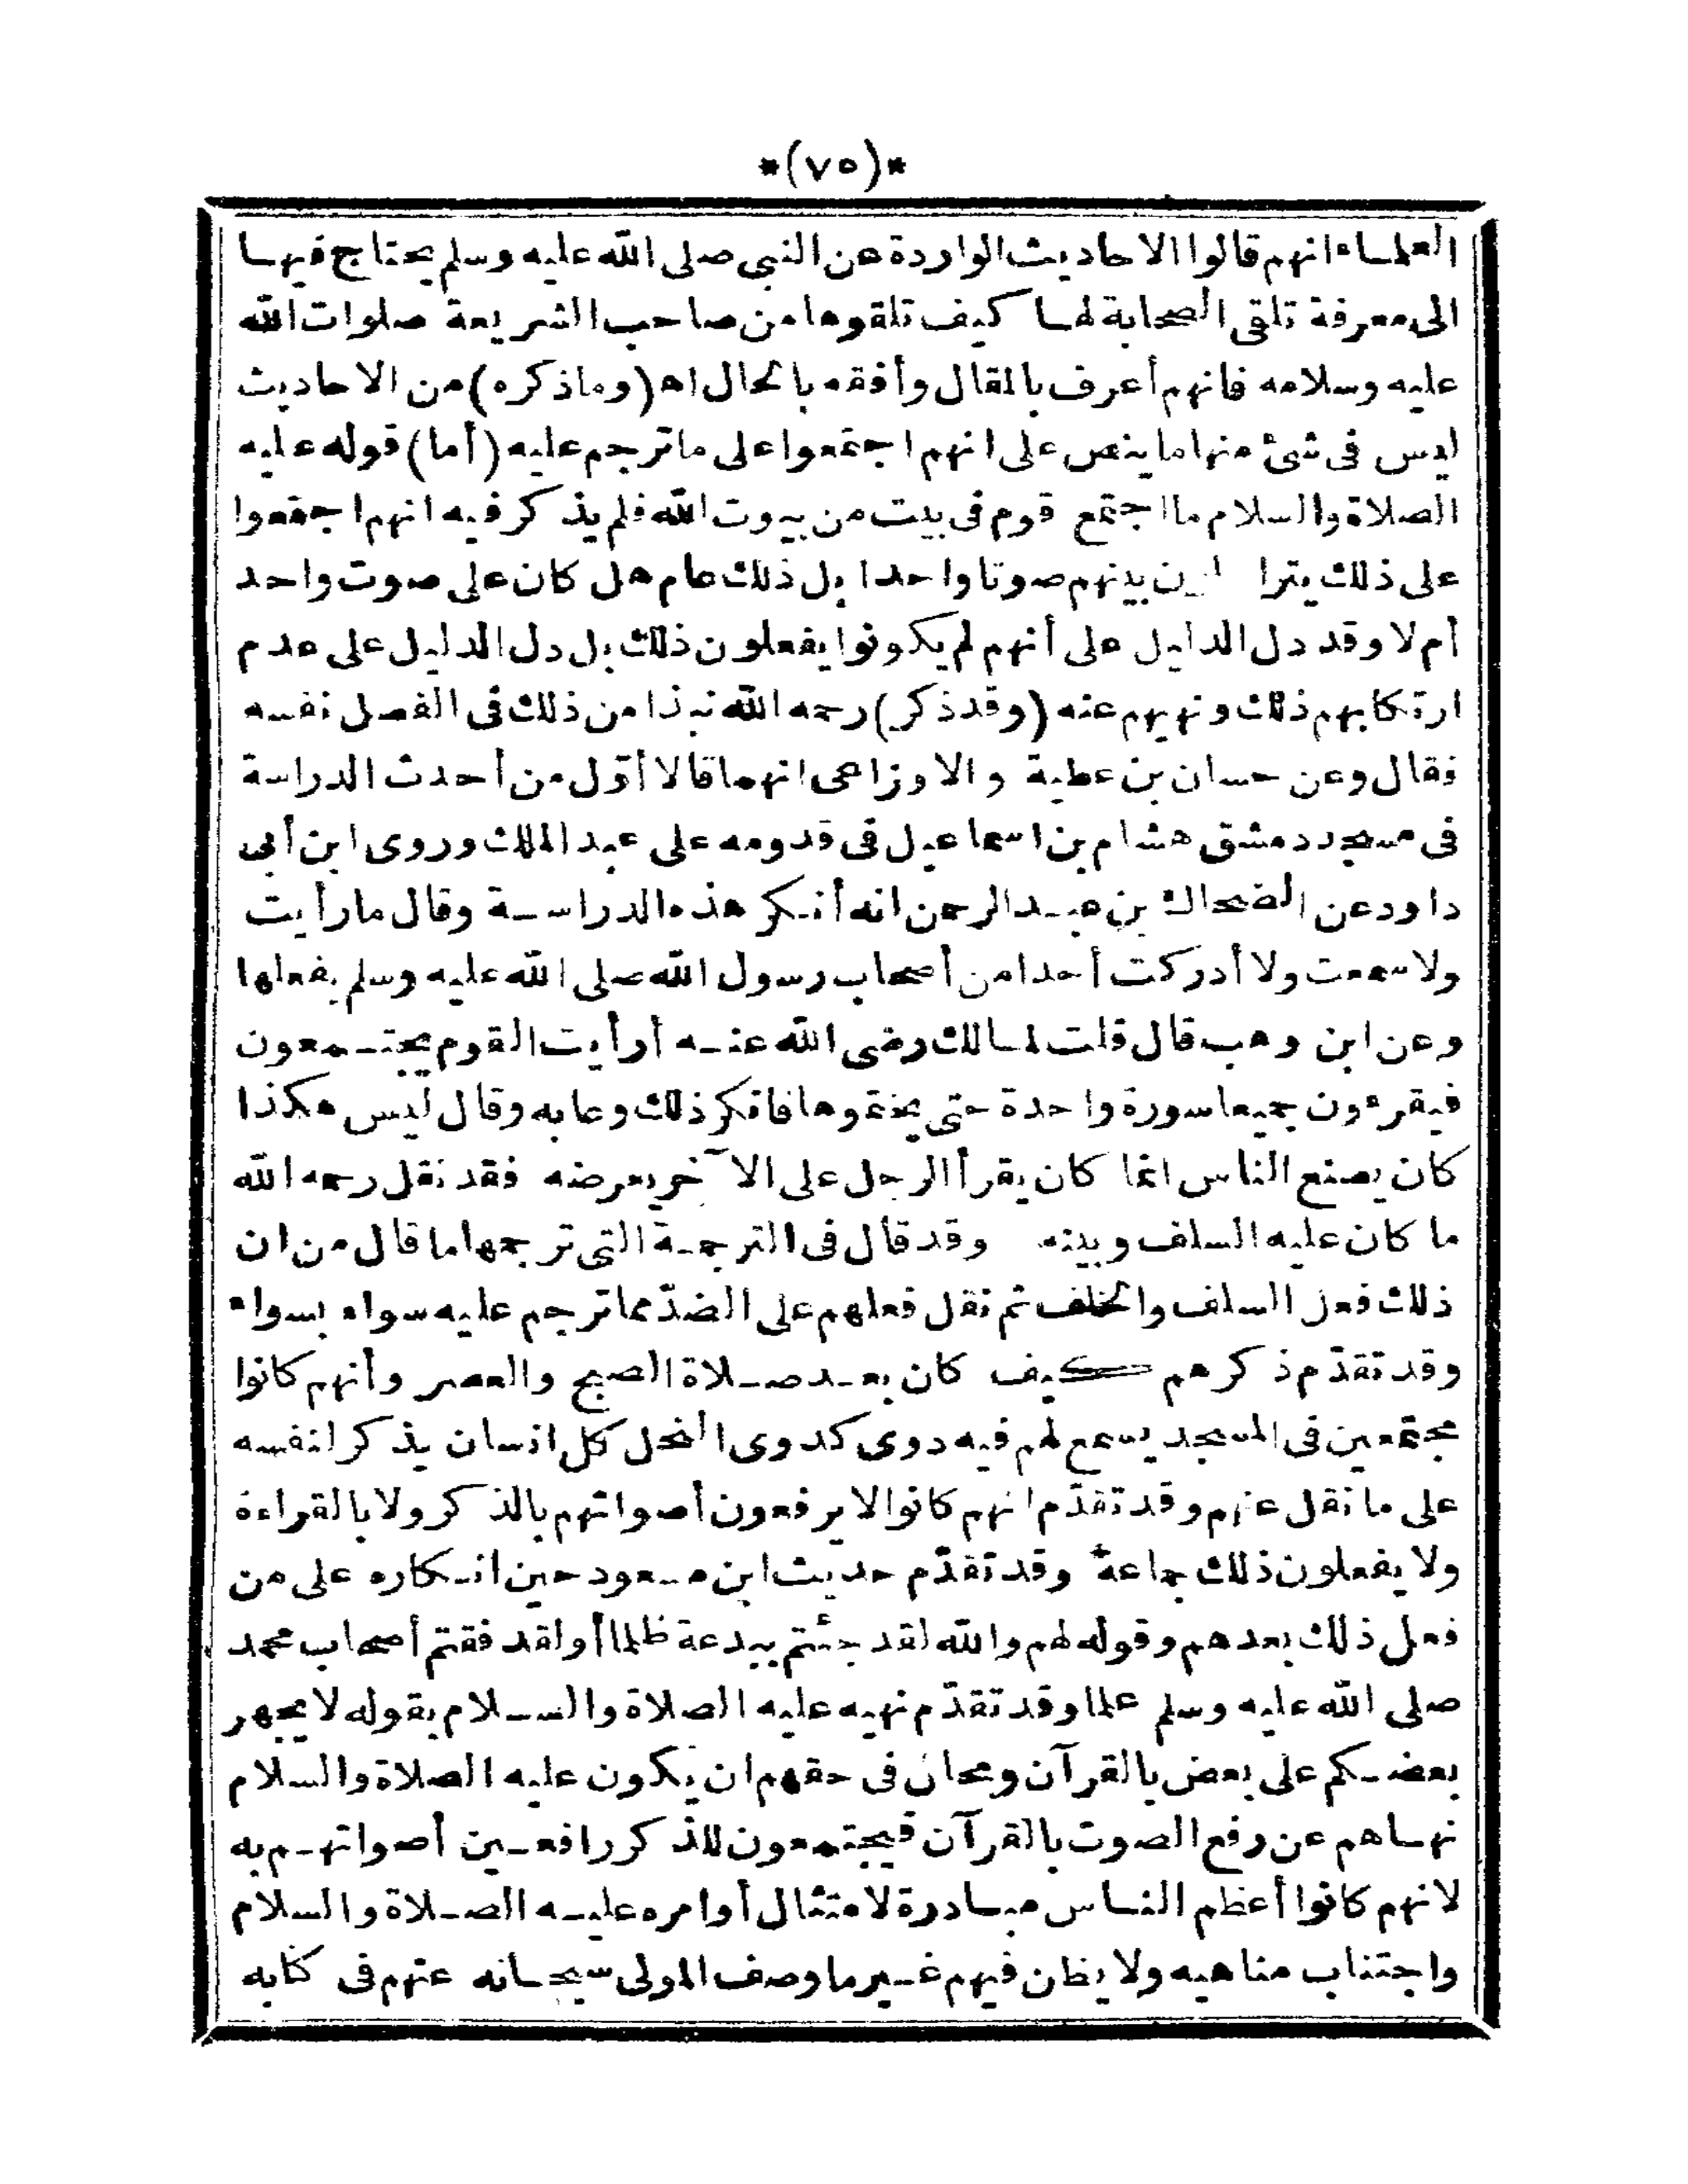 *(٧٥)*
العلماء انهم قالوا الاحاديث الواردة عن النبى صلى الله عليه وسلم يحتاج فيها
الى معرفة تلقى الصحابة لها كيف تلقوها من صاحب الشريعة صلوات الله
عليه وسلامه فانهم أعرف بالمقال وأفقه بالحال اه (وماذكره) من الاحاديث
ليس فى شئ منها ما ينص على انهم اجتمعوا على ما ترجم عليه (أما) قوله عليه
الصلاة والسلام ما اجتمع قوم فى بيت من بيوت الله فلم يذكر فيه انهم اجتمعوا
على ذلك بينهم صوتا واحدا بل ذلك عام هل كان على صوت واحد
أم لا وقد دل الدليل على أنهم لم يكونوا يفعلون ذلك بل دل الدليل على عدم
ارتكابهم ذلك ونهيهم عنه (وقد ذكر) رحمه الله نبذا من ذلك فى الفصل نفسه
فقال وعن حسان بن عطية والاوزاعى انهما قالا أوّل من أحدث الدراسة
فى مسجد دمشق هشام بن اسماعيل فى قدومه على عبد الملك وروى ابن أبى
داود عن الضحاك بن عبد الرحمن انه أنكر هذه الدراسة وقال ما رأيت
ولا سمعت ولا أدركت أحدا من أصحاب رسول الله صلى الله عليه وسلم يفعلها
وعن ابن وهب قال قلت لمالك رضى الله عنه أرأيت القوم يجتمعون
فيقرءون جميعا سورة واحدة حتى يختموها فانكر ذلك وعابه وقال ليس هكذا
كان يصنع الناس انما كان يقرأ الرجل على الآخر يعرضه فقد نقل رحمه الله
ما كان عليه السلف وبينه وقد قال فى الترجمة التى ترجمها ما قال من ان
ذلك فعل السلف والخلف ثم نقل فعلهم على الضدّ مما ترجم عليه سواء بسواء
وقد تقدّم ذكرهم كيف كان بعد صلاة الصبح والعصر وأنهم كانوا
مجتمعين فى المسجد يسمع لهم فيه دوى كدوى النحل كل انسان يذكر لنفسه
على ما نقل عنهم وقد تقدّم انهم كانوا لا يرفعون أصواتهم بالذكر ولا بالقراءة
ولا يفعلون ذلك جماعة وقد تقدّم حديث ابن مسعود حين انكاره على من
فعل ذلك بعدهم وقوله لهم والله لقد جئتم ببدعة ظلما أو لقد فقتم أصحاب محمد
صلى الله عليه وسلم علما وقد تقدّم نهيه عليه الصلاة والسلام بقوله لا يجهر
بعضكم على بعض بالقرآن ومحال فى حقهم ان يكون عليه الصلاة والسلام
نهاهم عن رفع الصوت بالقرآن فيجتمعون للذكر رافعين أصواتهم به
لانهم كانوا أعظم الناس مبادرة لامتثال أوامره عليه الصلاة والسلام
واجتناب مناهيه ولا يظن فيهم غير ما وصف المولى سبحانه عنهم فى كتابه